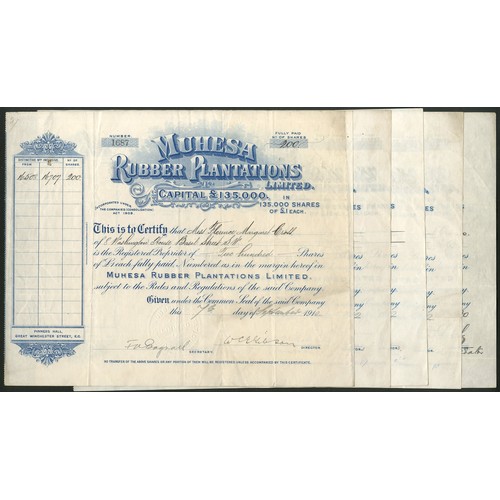 NUMBER.
1687
FULLY PAID
No OF SHARES
200
MUHESA
RUBBER PLANTATIONS
LIMITED.
CAPITAL £135,000,
IN
135,000 SHARES
OF £1 EACH.
INCORPORATED UNDER
THE COMPANIES (CONSOLIDATION)
ACT 1908.
DISTINCTIVE Nos INCLUSIVE
FROM TO
No OF
SHARES
200
This is to Certify that Miss Margaret
of 8 Washington House Basil Street SW
is the Registered Proprietor of Two hundred Shares
of £1 each, fully paid, Numbered as in the margin hereof in
MUHESA RUBBER PLANTATIONS LIMITED.
subject to the Rules and Regulations of the said Company.
Given under the Common Seal of the said Company
this 7th day of September 1910.
SECRETARY.
DIRECTOR.
NO TRANSFER OF THE ABOVE SHARES OR ANY PORTION OF THEM WILL BE REGISTERED UNLESS ACCOMPANIED BY THIS CERTIFICATE.
PINNERS HALL,
GREAT WINCHESTER STREET, E.C.